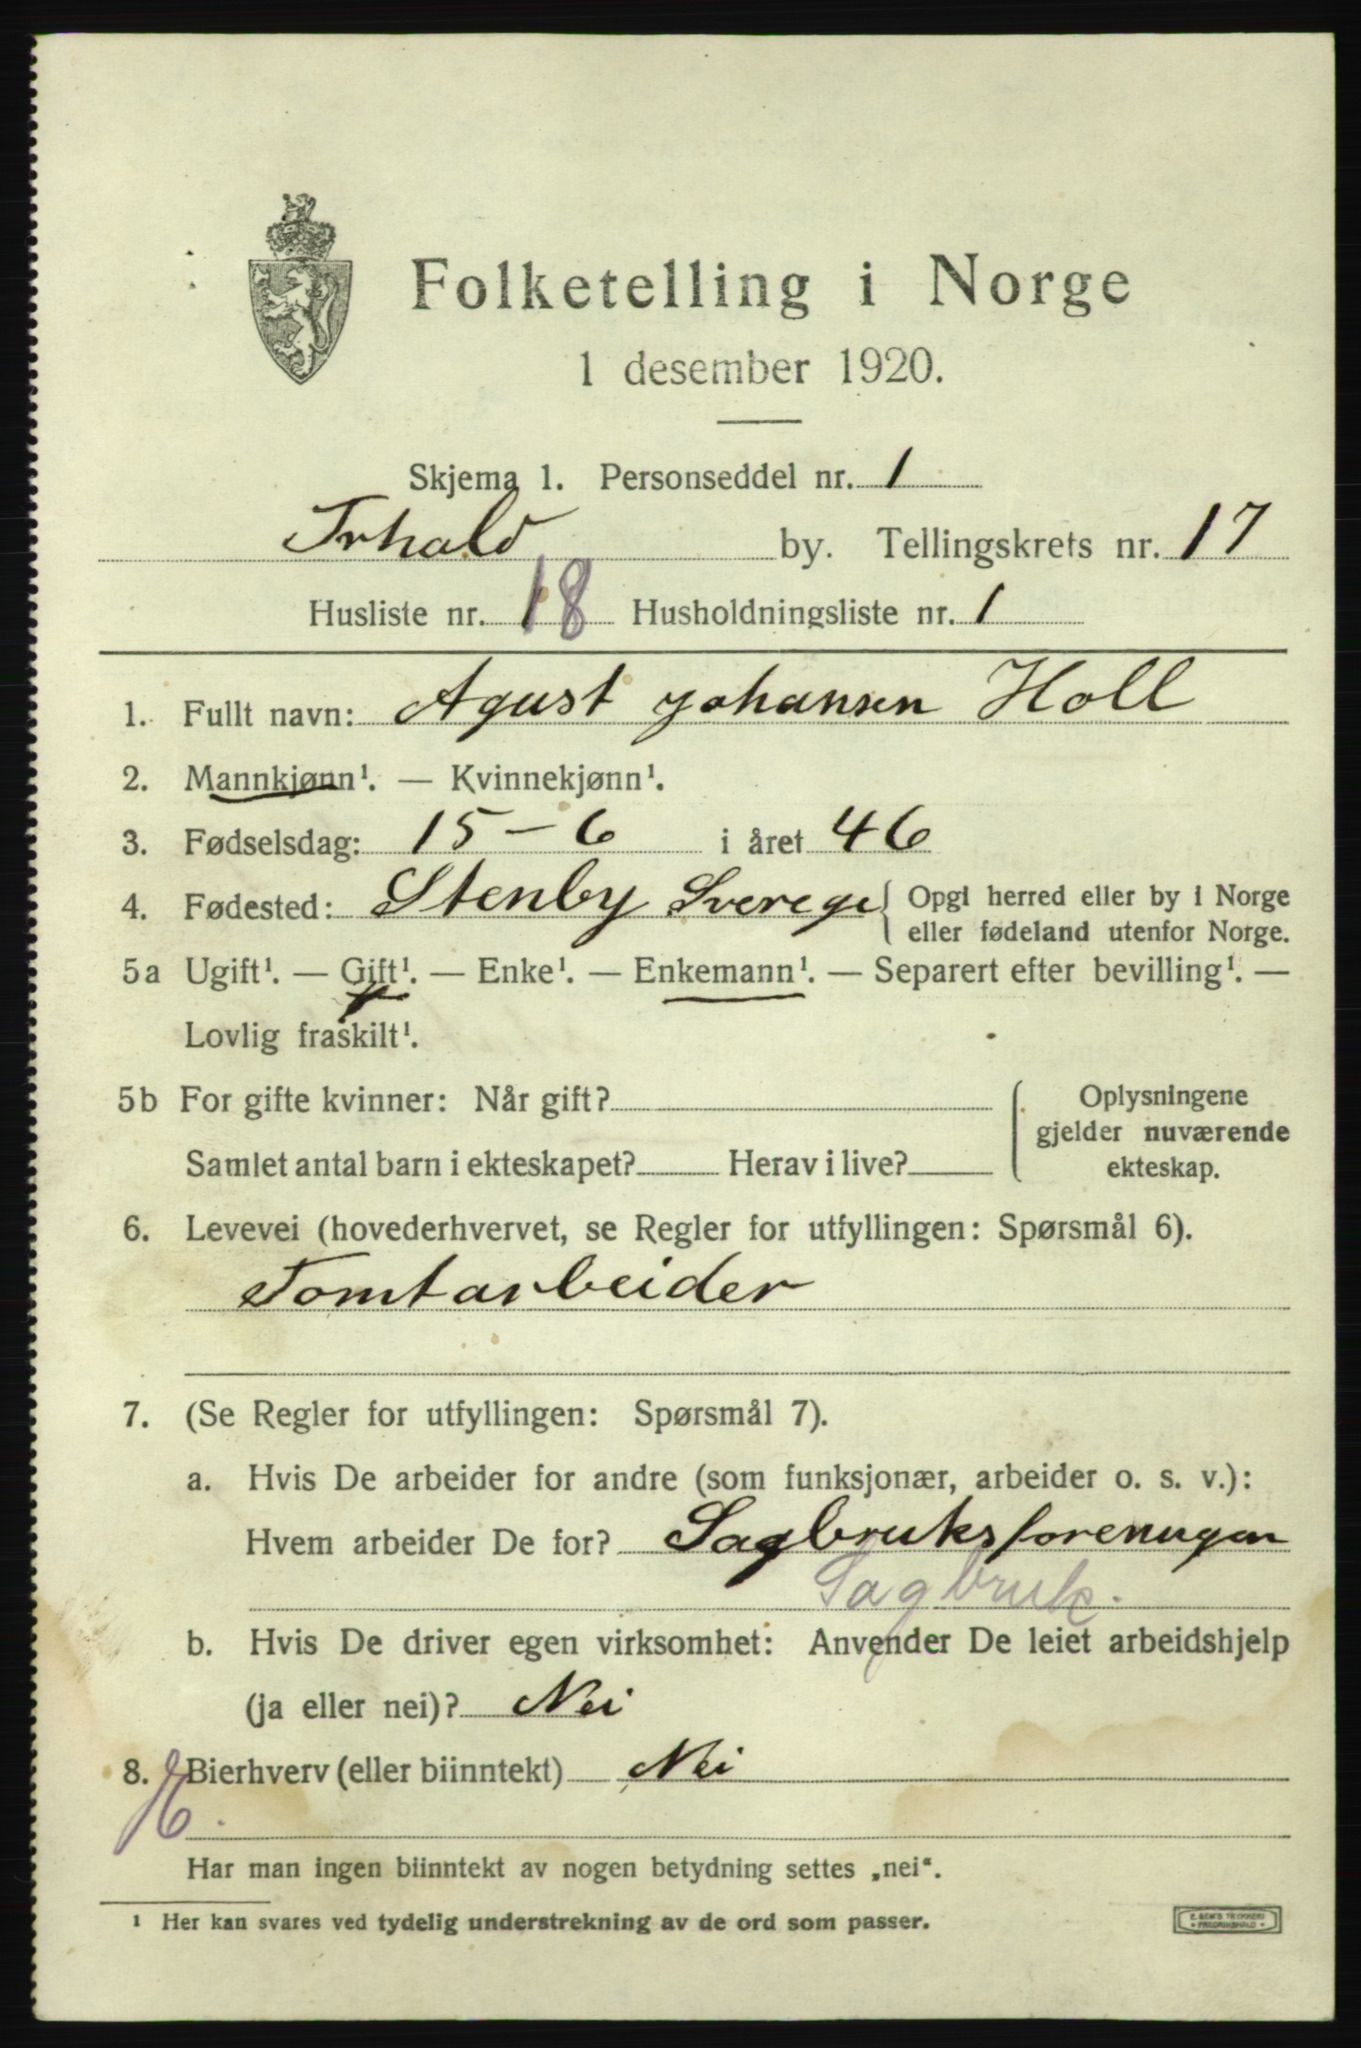 Folketelling i Norge
1 desember 1920.
Skjema 1. Personseddel nr. 1
Frhald by. Tellingskrets nr. 17
Husliste nr. 18 Husholdningsliste nr. 1
1. Fullt navn: Agust Johansen Holl
2. Mannkjønn¹. — Kvinnekjønn¹.
3. Fødselsdag: 15-6 i året 46
4. Fødested: Stenby Sverege { Opgi herred eller by i Norge
eller fødeland utenfor Norge.
5a Ugift¹. — Gift¹. — Enke¹. — Enkemann¹. — Separert efter bevilling¹. —
Lovlig fraskilt¹.
5b For gifte kvinner: Når gift? Oplysningene
gjelder nuværende
Samlet antal barn i ekteskapet? Herav i live? ekteskap.
6. Levevei (hovederhvervet, se Regler for utfyllingen: Spørsmål 6).
Tomtarbeider
7. (Se Regler for utfyllingen: Spørsmål 7).
a. Hvis De arbeider for andre (som funksjonær, arbeider o. s. v.):
Hvem arbeider De for? Sagbruksforenugen
Sagbruk.
b. Hvis De driver egen virksomhet: Anvender De leiet arbeidshjelp
(ja eller nei)? Nei
8. Bierhverv (eller biinntekt) Nei
Har man ingen biinntekt av nogen betydning settes „nei“.
¹ Her kan svares ved tydelig understrekning av de ord som passer.
E. SEM'S TRYKKERI
• FREDRIKSHALD •